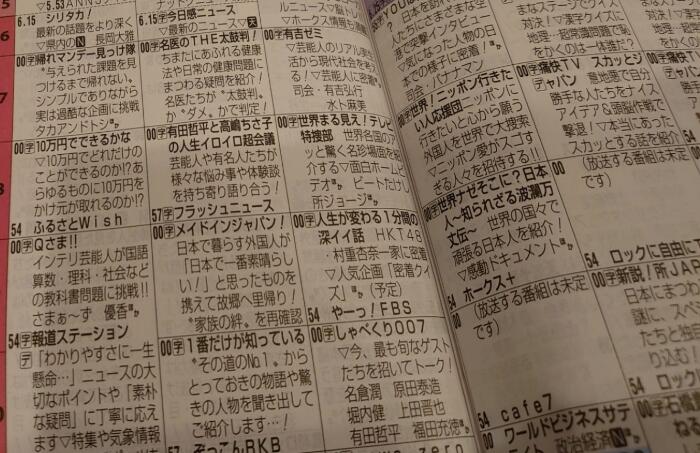 5.53
6.15 シリタカ!
最新の話題をより深く
▽県内のN 長岡大雅
00字帰れマンデー見っけ隊
〝与えられた課題を見
つけるまで帰れない〟
シンプルでありながら
実は過酷な企画に挑戦
タカアンドトシ
00字10万円でできるかな
▽10万円でどれだけの
ことができるのか!?あ
らゆるものに10万円を
かけ元が取れるのか!?
54 ふるさとWish
00字Qさま!!
インテリ芸能人が国語
算数・理科・社会など
の教科書問題に挑戦!!
さまぁ〜ず 優香
54字報道ステーション
デ「わかりやすさに一生
懸命…」ニュースの大
切なポイントや「素朴
な疑問」に丁寧に応え
ます▽特集や気象情報
6.15字今日感ニュース
▽最新のニュース▽天
00字名医のTHE太鼓判!
ちまたにあふれる健康
法や日常の健康問題に
まつわる疑問を紹介!
名医たちが〝太鼓判〟
か〝ダメ〟かで判定!
00字有田哲平と高嶋ちさ子
の人生イロイロ超会議
芸能人や有名人たちが
様々な悩み事や体験談
を持ち寄り語り合う!
57字フラッシュニュース
00字メイドインジャパン!
日本で暮らす外国人が
「日本で一番素晴らし
い!」と思ったものを
携えて故郷へ里帰り!
〝家族の絆〟を再確認
00字1番だけが知っている
〝その道のNo1〟から
とっておきの物語や驚
きの人物を聞き出して
ご紹介します…!
57 ぞっこんRKB
ルニュース▽
▽ホークス情報も
00字有吉ゼミ
▽芸能人のリアル実生
活から現代社会を考え
る!▽芸能人に密着
司会・有吉弘行
水卜麻美
00字世界まる見え!テレビ
特捜部 世界名国のア
ッと驚く名珍場面を紹
介する▽面白ホームビ
デオ ビートたけし
所ジョージ
00字人生が変わる1分間の
深イイ話 HKT48
・村重杏奈一家に密着
▽人気企画「密着クイ
ズ」 (予定)
54 やーっ!FBS
00字しゃべくり007
▽今、最も旬なゲスト
たちを招いてトーク!
名倉潤 原田泰造
堀内健 上田晋也
有田哲平 福田充徳
zero
日本を訪
人たちにさまざまな空
港で突撃インタビュー
▽気になった人物の日
本での様子に密着!
司会・バナナマン
00字世界!ニッポン行きた
い人応援団ニッポンに
行きたいと心から願う
外国人を世界で大捜索
▽ニッポン愛がスゴす
ぎる人々を招待する!!
00字世界ナゼそこに?日本
人〜知られざる波瀾万
丈伝〜 世界の国々で
頑張る日本人を紹介!
▽感動ドキュメント
54 ホークス+
00
(放送する番組は未定
です)
54 cafe7
00 ワールドビジネスサテ
ライト 政治経済N
まなステージでクイズ
対決!▽漢字クイズに
地理…超常識問題で恥
をかくのは一体誰だ?
00字痛快TV スカッとジ
ャパン 意地悪で自分
勝手な人たちをナイス
アイデア&頭脳作戦で
撃退!▽本当にあった
スカッとする話を紹介
00
(放送する番組は未定
です)
54 ロックに自由に
00字新説!所JAP
日本にまつわ
謎に、スペ
たちと独
り込む!
54 ロックに
00字石橋
ねる
地理…
をかく
00字痛快TV
ャパン
勝手な
アイデ
撃退!
スカッ
00
(放送
です